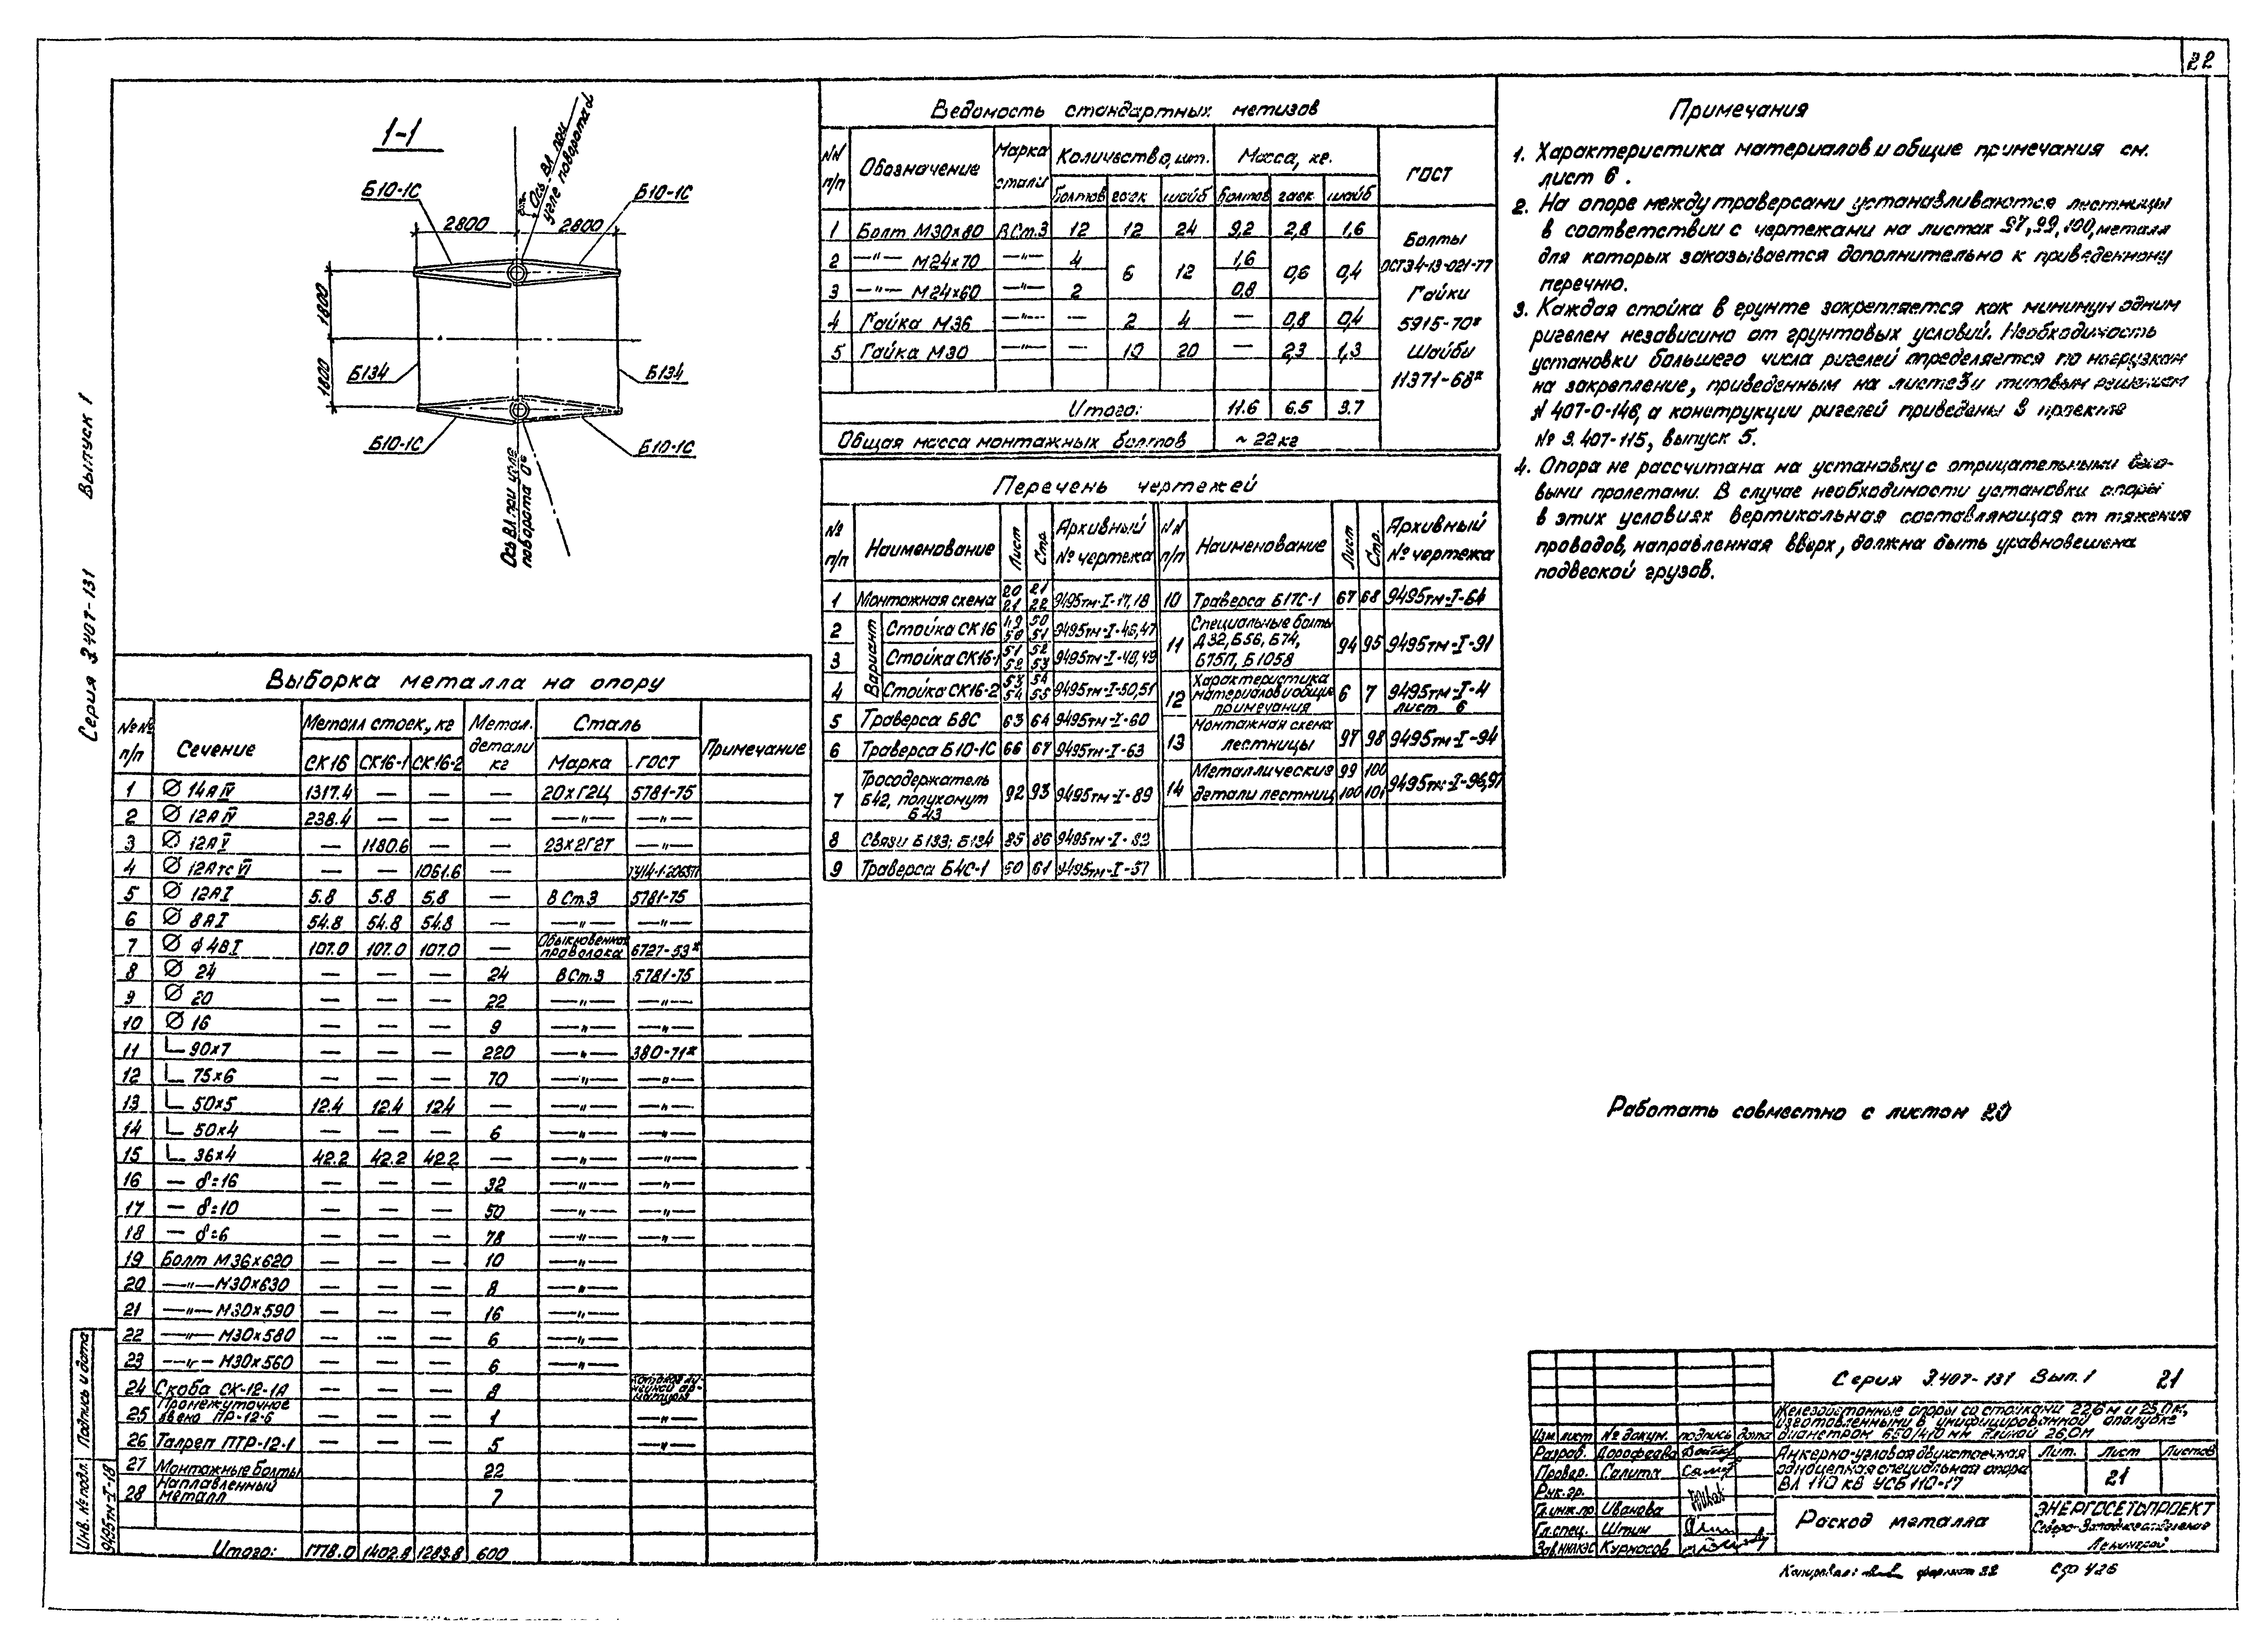 22
Серия 3.407-131 Выпуск 1
1-1
Б10-1С
Б10-1С
Ось ВЛ при
угле поворота α
2800
2800
1800
1800
Б134
Б134
Б10-1С
Б10-1С
Ось ВЛ при угле
поворота 0°
Выборка металла на опору
№№ п/п | Сечение | Металл стоек, кг | Метал. детали кг | Сталь | Примечание
СК16 | СК16-1 | СК16-2 | Марка | ГОСТ
1 | ∅ 14А IV | 1317.4 | — | — | — | 20ХГ2Ц | 5781-75
2 | ∅ 12А IV | 238.4 | — | — | — | —"— | —"—
3 | ∅ 12А V | — | 1180.6 | — | — | 23Х2Г2Т | —"—
4 | ∅ 12Атс VI | — | — | 1061.6 | —
5 | ∅ 12А I | 5.8 | 5.8 | 5.8 | — | В Ст.3 | 5781-75
6 | ∅ 8А I | 54.8 | 54.8 | 54.8 | — | —"— | —"—
7 | ∅ ф4В I | 107.0 | 107.0 | 107.0 | — | Обыкновенная проволока | 6727-53*
8 | ∅ 24 | — | — | — | 24 | В Ст.3 | 5781-75
9 | ∅ 20 | — | — | — | 22 | —"— | —"—
10 | ∅ 16 | — | — | — | 9 | —"— | —"—
11 | ∟ 90х7 | — | — | — | 220 | —"— | 380-71*
12 | ∟ 75х6 | — | — | — | 70 | —"— | —"—
13 | ∟ 50х5 | 12.4 | 12.4 | 12.4 | — | —"— | —"—
14 | ∟ 50х4 | — | — | — | 6 | —"— | —"—
15 | ∟ 36х4 | 42.2 | 42.2 | 42.2 | — | —"— | —"—
16 | — δ=16 | — | — | — | 32 | —"— | —"—
17 | — δ=10 | — | — | — | 50 | —"— | —"—
18 | — δ=6 | — | — | — | 78 | —"— | —"—
19 | Болт М36х620 | — | — | — | 10 | —"—
20 | —"— М30х630 | — | — | — | 8 | —"—
21 | —"— М30х590 | — | — | — | 16 | —"—
22 | —"— М30х580 | — | — | — | 6 | —"—
23 | —"— М30х560 | — | — | — | 6 | —"—
24 | Скоба СК-12-1А | — | — | — | 8 | Каталог линейной арматуры
25 | Промежуточное звено ПР-12-6 | — | — | — | 1 | —"—
26 | Талреп ПТР-12-1 | — | — | — | 5 | —"—
27 | Монтажные болты | 22
28 | Наплавленный металл | 7
Итого: | 1778.0 | 1402.8 | 1283.8 | 600
Ведомость стандартных метизов
№№ п/п | Обозначение | Марка стали | Количество, шт. | Масса, кг. | ГОСТ
болтов | гаек | шайб | болтов | гаек | шайб
1 | Болт М30х80 | В Ст.3 | 12 | 12 | 24 | 9,2 | 2,8 | 1,6
2 | —"— М24х70 | —"— | 4 | 6 | 12 | 1,6 | 0,6 | 0,4
3 | —"— М24х60 | —"— | 2 | 0,8
4 | Гайка М36 | —"— | — | 2 | 4 | — | 0,8 | 0,4
5 | Гайка М30 | —"— | — | 10 | 20 | — | 2,3 | 1,3
Болты
ОСТ34-13-021-77
Гайки
5915-70*
Шайбы
11371-68*
Итого: | 11.6 | 6.5 | 3.7
Общая масса монтажных болтов | ~ 22 кг
Перечень чертежей
№ п/п | Наименование | Лист | Стр. | Архивный № чертежа | №№ п/п | Наименование | Лист | Стр. | Архивный № чертежа
1 | Монтажная схема | 20 21 | 21 22 | 9495тм-I-17,18
Вариант
2 | Стойка СК16 | 49 50 | 50 51 | 9495тм-I-46,47
3 | Стойка СК16-1 | 51 52 | 52 53 | 9495тм-I-48,49
4 | Стойка СК16-2 | 53 54 | 54 55 | 9495тм-I-50,51
5 | Траверса Б8С | 63 | 64 | 9495тм-I-60
6 | Траверса Б10-1С | 66 | 67 | 9495тм-I-63
7 | Тросодержатель Б42, полухомут Б43 | 92 | 93 | 9495тм-I-89
8 | Связи Б133; Б134 | 85 | 86 | 9495тм-I-82
9 | Траверса Б4С-1 | 60 | 61 | 9495тм-I-57
10 | Траверса Б17С-1 | 67 | 68 | 9495тм-I-64
11 | Специальные болты Д32, Б56, Б74, Б75П, Б105В | 94 | 95 | 9495тм-I-91
12 | Характеристика материалов и общие примечания | 6 | 7 | 9495тм-I-4 лист 6
13 | Монтажная схема лестницы | 97 | 98 | 9495тм-I-94
14 | Металлические детали лестниц | 99 100 | 100 101 | 9495тм-I-96,97
Примечания
1. Характеристика материалов и общие примечания см.
лист 6.
2. На опоре между траверсами устанавливаются лестницы
в соответствии с чертежами на листах 97, 99, 100, металл
для которых заказывается дополнительно к приведенному
перечню.
3. Каждая стойка в грунте закрепляется как минимум одним
ригелем независимо от грунтовых условий. Необходимость
установки большего числа ригелей определяется по нагрузкам
на закрепление, приведенным на листе 3 и типовым решениям
№ 407-0-146, а конструкции ригелей приведены в проекте
№ 3.407-115, выпуск 5.
4. Опора не рассчитана на установку с отрицательными весо-
выми пролетами. В случае необходимости установки опоры
в этих условиях вертикальная составляющая от тяжения
проводов, направленная вверх, должна быть уравновешена
подвеской грузов.
Работать совместно с листом 20
Серия 3.407-131 Вып. 1 21
Железобетонные опоры со стойками 22,6м и 25,0м,
изготовленными в унифицированной опалубке
диаметром 650/410 мм длиной 26.0м
Изм. лист | № докум. | подпись | дата
Разраб. | Дорофеева
Провер. | Салита
Рук.гр.
Гл.инж.пр | Иванова
Гл.спец. | Штин
Зав.НИЛКЭС | Курносов
Анкерно-угловая двухстоечная
одноцепная специальная опора
ВЛ 110 кВ УСБ 110-17
Лит. | Лист | Листов
21
Расход металла
ЭНЕРГОСЕТЬПРОЕКТ
Северо-Западное отделение
Ленинград
Копировал: формат 22
Инв. № подл. | Подпись и дата
9495тм-I-18